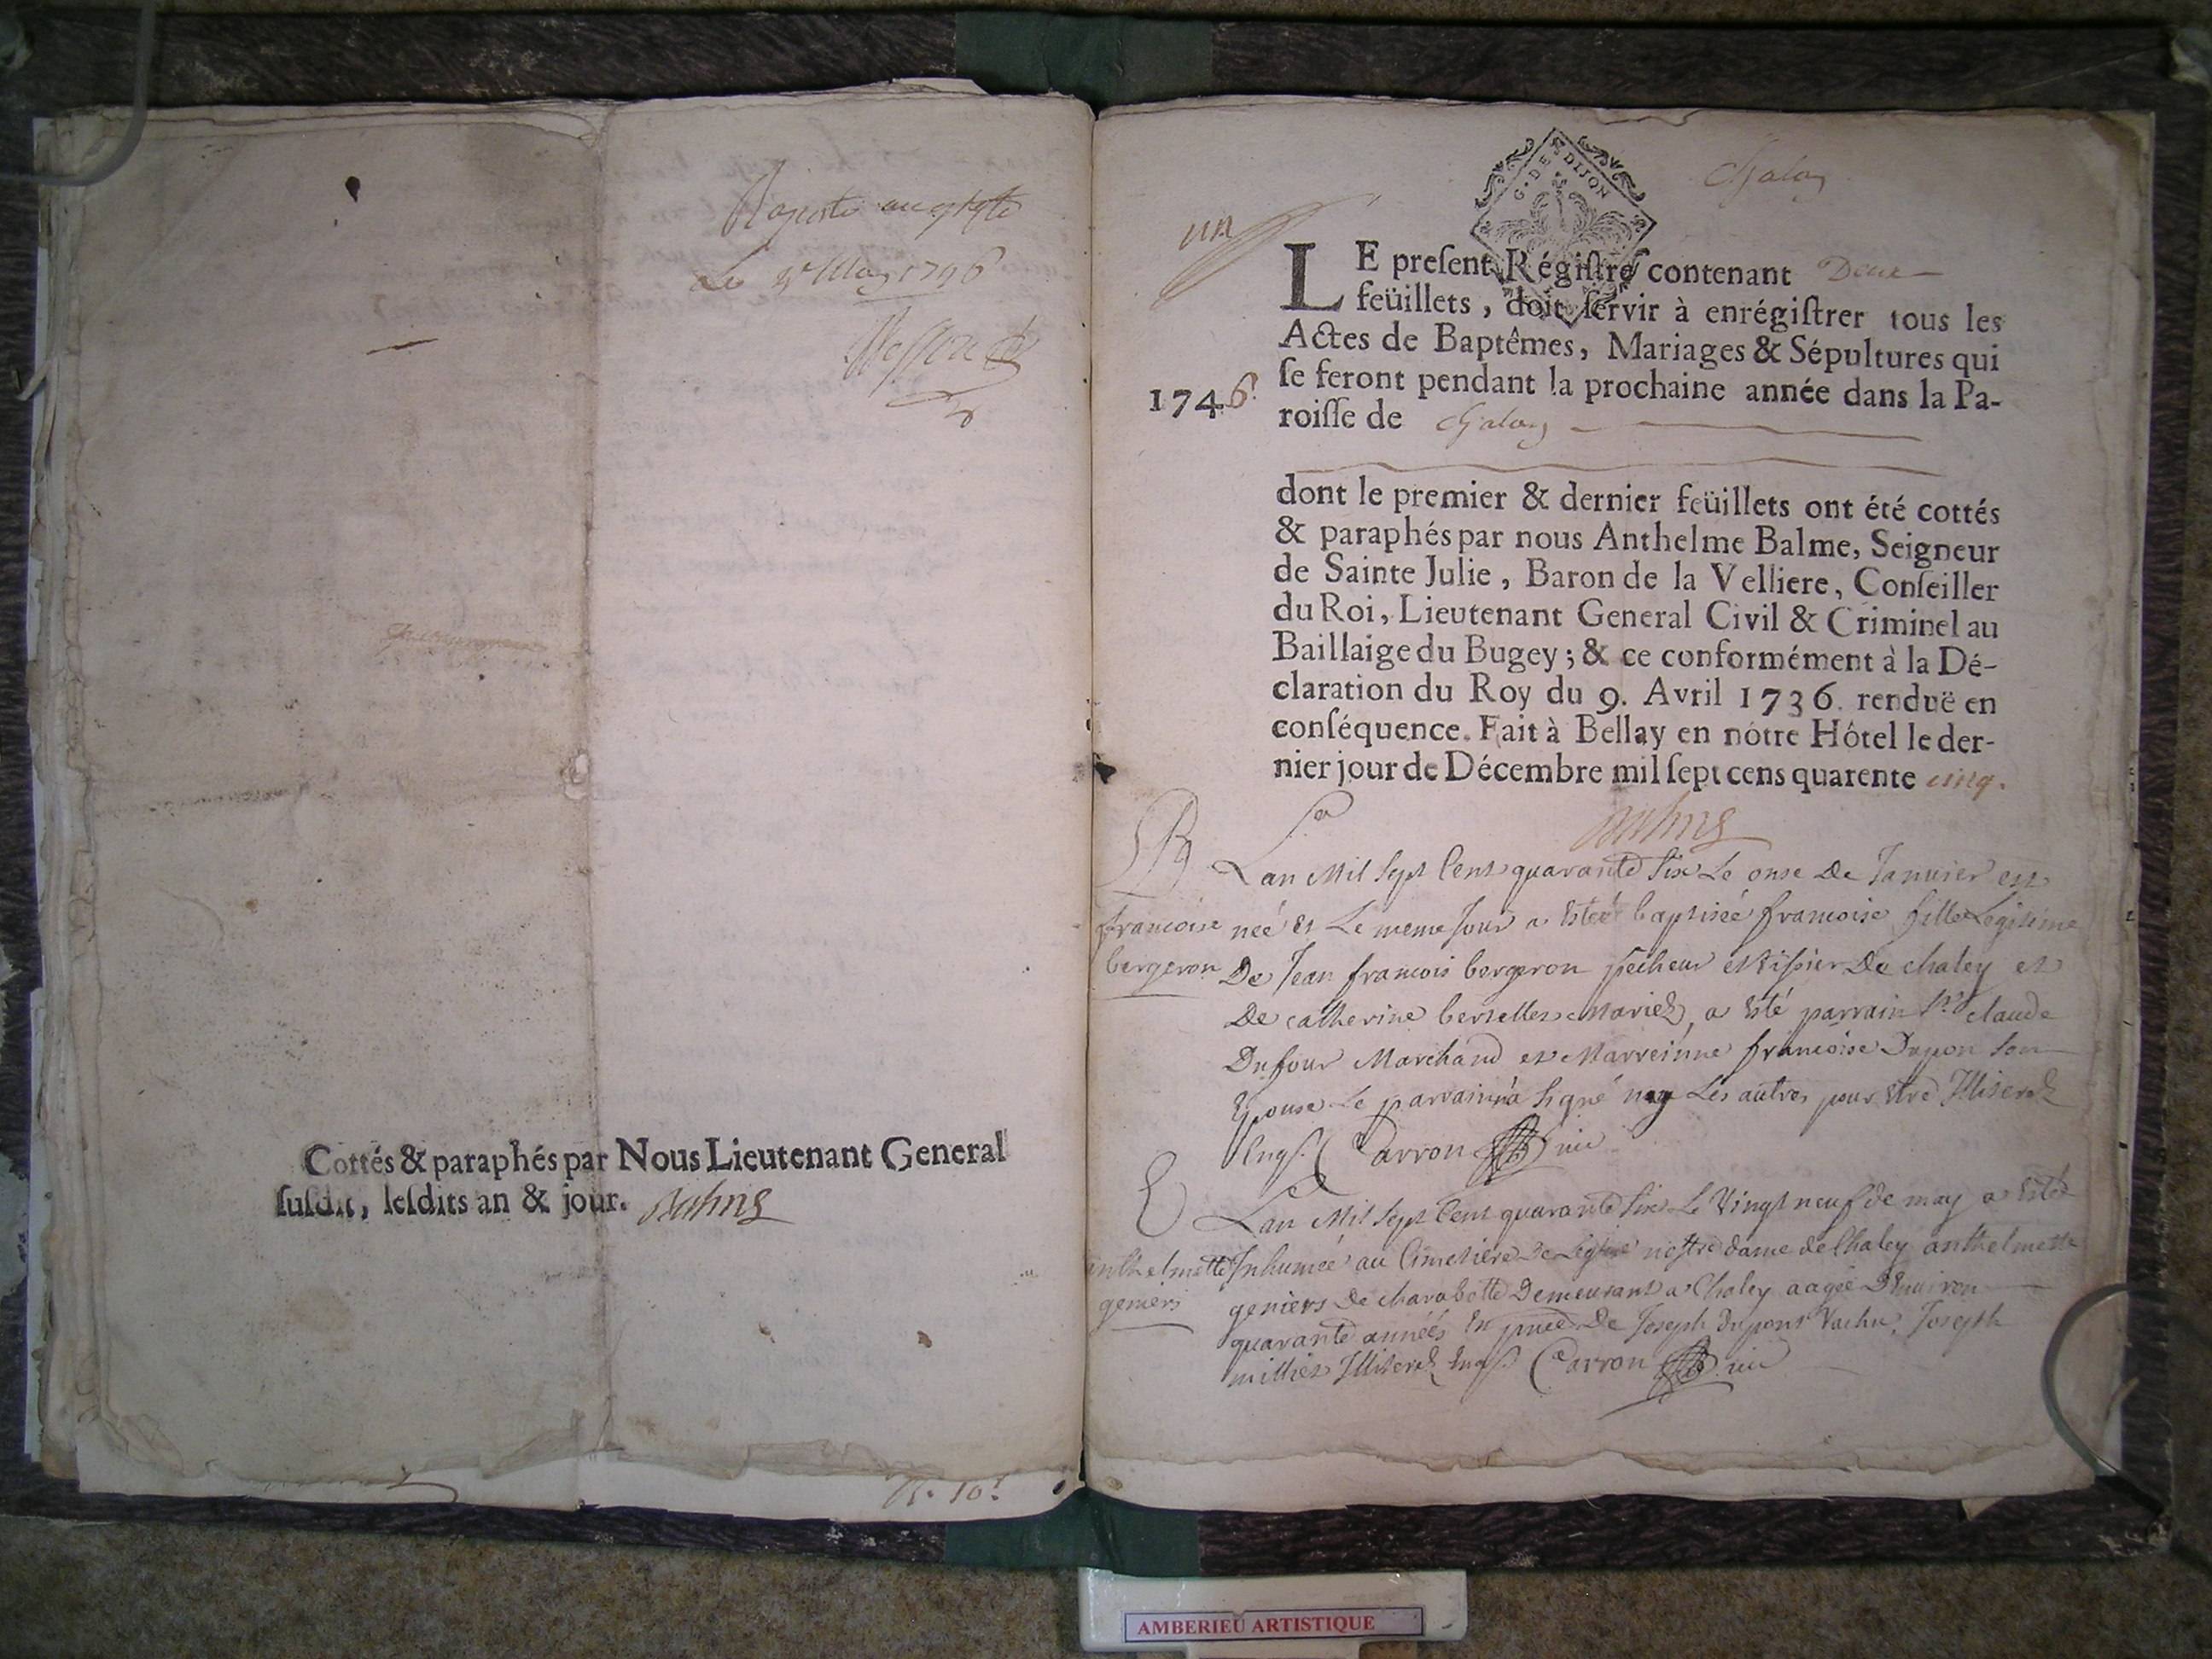 au greffe
Le 9e May 1746
Cottés & paraphés par Nous Lieutenant General
susdit, lesdits an & jour.
G. DE DIJON
Chaley
un
LE present Régistre contenant Deux
feüillets, doit servir à enrégistrer tous les
Actes de Baptêmes, Mariages & Sépultures qui
se feront pendant la prochaine année dans la Pa-
1746.
roisse de Chaley
dont le premier & dernier feüillets ont été cottés
& paraphés par nous Anthelme Balme, Seigneur
de Sainte Julie, Baron de la Velliere, Conseiller
du Roi, Lieutenant General Civil & Criminel au
Baillaige du Bugey; & ce conformément à la Dé-
claration du Roy du 9. Avril 1736. renduë en
conséquence. Fait à Bellay en nótre Hôtel le der-
nier jour de Décembre mil sept cens quarente cinq.
B
francoise
bergeron
Lan Mil Sept Cent quarante Six Le onse De Januier est
neé et Le meme Jour a Esteé baptiseé francoise fille Legitime
De Jean francois bergeron pecheur et tissier De chaley et
De catherine berselles Mariez, a Esté parrain Sr claude
Dufour Marchand et Marreinne francoise Dupon Son
Epouse Le parrain a Signé non Les autres pour Etre Illiterez
Enqs. Carron vic
E
anthelmette
geniers
Lan Mil Sept Cent quarante Six Le Vingt neuf de may a Esteé
Inhumeé au Cimetiere De Leglise nostre dame de Chaley anthelmette
geniers De charabotte Demeurant a Chaley aageé D'Enuiron
quarante anneés En pnce De Joseph Dupont Vachu, Joseph
millies Illiterez Enqs Carron vic
AMBERIEU ARTISTIQUE